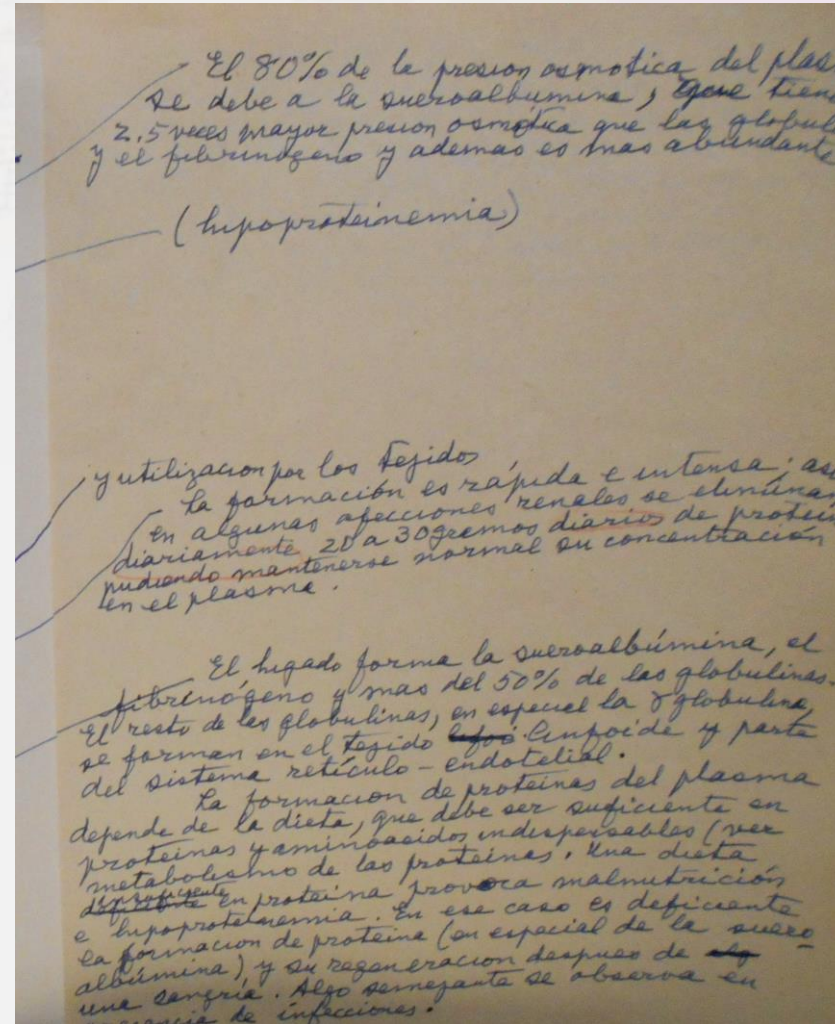 El 80% de la presion osmotica del plas
se debe a la sueroalbumina, que tien
2.5 veces mayor presion osmotica que las globul
y el fibrinogeno y ademas es mas abundante
(hipoproteinemia)
y utilizacion por los tejidos
La formación es rápida e intensa; asi
en algunas afecciones renales se elimina
diariamente 20 a 30 gramos diarios de protei
pudiendo mantenerse normal su concentración
en el plasma.
El higado forma la sueroalbúmina, el
fibrinógeno y mas del 50% de las globulinas.
El resto de las globulinas, en especial la γ globulina,
se forman en el tejido linfoide y parte
del sistema retículo-endotelial.
La formacion de proteinas del plasma
depende de la dieta, que debe ser suficiente en
proteinas y aminoacidos indispensables (ver
metabolismo de las proteinas. Una dieta
insuficiente
en proteina provoca malnutrición
e hipoproteinemia. En ese caso es deficiente
la formacion de proteina (en especial de la suero-
albúmina) y su regeneracion despues de
una sangría. Algo semejante se observa en
de infecciones.